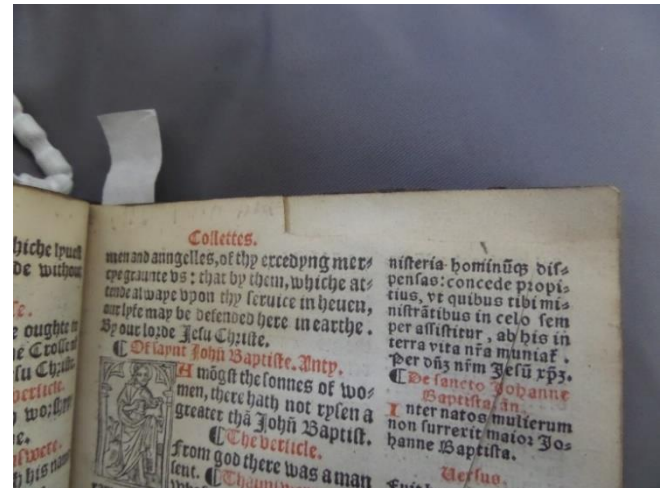 hiche lyuest
de without
e.
e oughte to
e Crosse
su Christ
verticle.
wo:ship
e.
swere.
h his name
Collettes.
men and anngelles, of thy excedyng mer⸗
cye graunte vs : that by them, whiche at⸗
tende alwaye vpon thy seruice in heuen,
our lyfe may be defended here in earthe .
By our lorde Jesu Christe.
¶ Of saynt Johñ Baptiste. Anty.
A mõgst the sonnes of wo⸗
men, there hath not rysen a
greater thã Johñ Baptist.
¶ The verticle.
From god there was a man
sent.
nisteria hominũq̃ dis⸗
pensas: concede propi⸗
tius, vt quibus tibi mi⸗
nistrãtibus in celo sem
per assistitur , ab his in
terra vita nr̃a muniat̃ .
Per dñz nr̃m Jesũ xp̃z.
¶ De sancto Johanne
Baptista, añ.
I nter natos mulierum
non surrexit maior Jo⸗
hanne Baptista.
Versus.